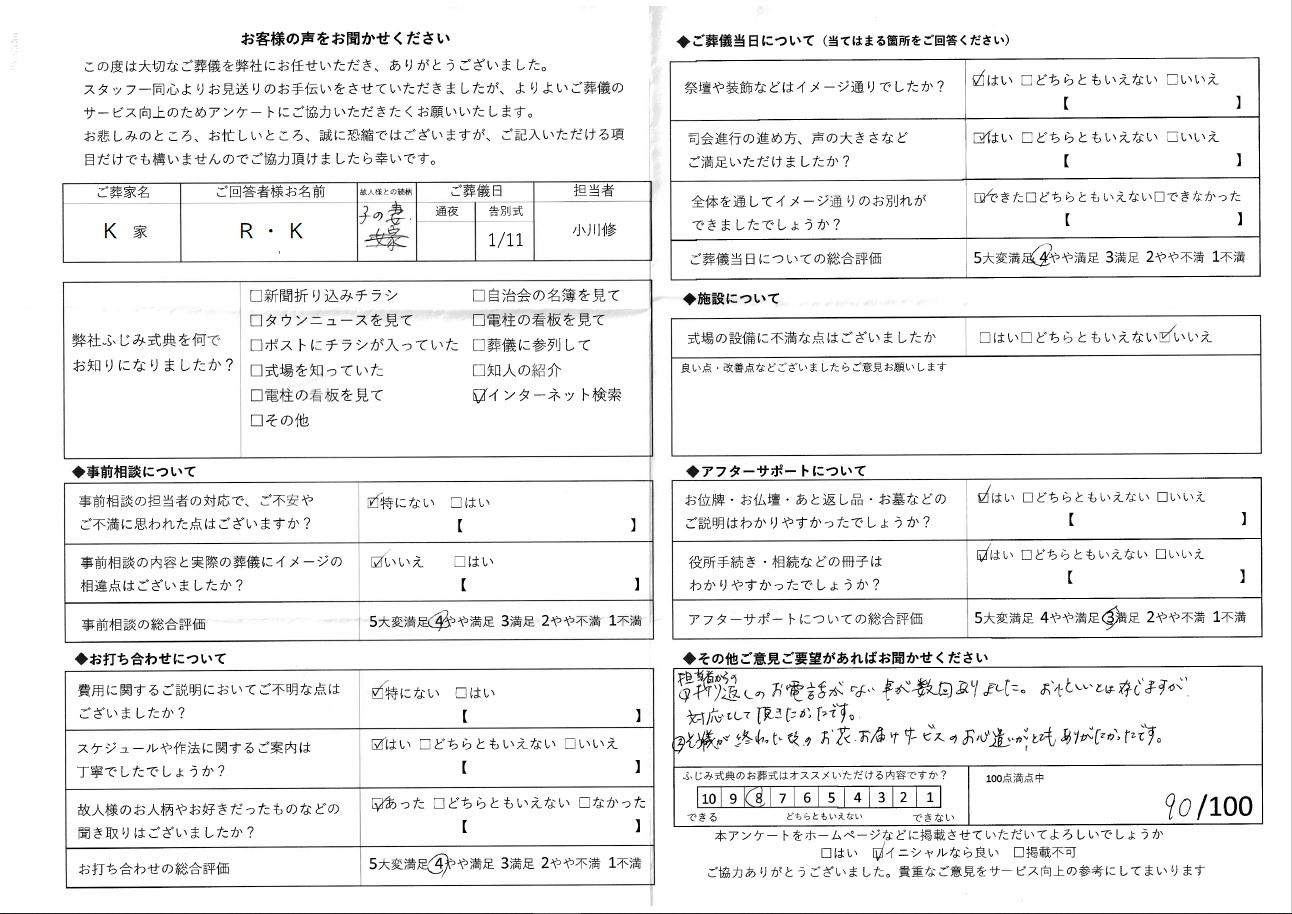 お客様の声をお聞かせください
この度は大切なご葬儀を弊社にお任せいただき、ありがとうございました。
スタッフ一同心よりお見送りのお手伝いをさせていただきましたが、よりよいご葬儀の
サービス向上のためアンケートにご協力いただきたくお願いいたします。
お悲しみのところ、お忙しいところ、誠に恐縮ではございますが、ご記入いただける項
目だけでも構いませんのでご協力頂けましたら幸いです。
ご葬家名 ご回答者様お名前 故人様との続柄 ご葬儀日 担当者
通夜 告別式
K 家 R・K 子の妻 1/11 小川修
弊社ふじみ式典を何で
お知りになりましたか?
□新聞折り込みチラシ □自治会の名簿を見て
□タウンニュースを見て □電柱の看板を見て
□ポストにチラシが入っていた □葬儀に参列して
□式場を知っていた □知人の紹介
□電柱の看板を見て ☑インターネット検索
□その他
◆事前相談について
事前相談の担当者の対応で、ご不安や
ご不満に思われた点はございますか?
☑特にない □はい
【 】
事前相談の内容と実際の葬儀にイメージの
相違点はございましたか?
☑いいえ □はい
【 】
事前相談の総合評価 5大変満足 4やや満足 3満足 2やや不満 1不満
◆お打ち合わせについて
費用に関するご説明においてご不明な点は
ございましたか?
☑特にない □はい
【 】
スケジュールや作法に関するご案内は
丁寧でしたでしょうか?
☑はい □どちらともいえない □いいえ
【 】
故人様のお人柄やお好きだったものなどの
聞き取りはございましたか?
☑あった □どちらともいえない □なかった
【 】
お打ち合わせの総合評価 5大変満足 4やや満足 3満足 2やや不満 1不満
◆ご葬儀当日について（当てはまる箇所をご回答ください）
祭壇や装飾などはイメージ通りでしたか?
☑はい □どちらともいえない □いいえ
【 】
司会進行の進め方、声の大きさなど
ご満足いただけましたか?
☑はい □どちらともいえない □いいえ
【 】
全体を通してイメージ通りのお別れが
できましたでしょうか?
☑できた□どちらともいえない□できなかった
【 】
ご葬儀当日についての総合評価 5大変満足 4やや満足 3満足 2やや不満 1不満
◆施設について
式場の設備に不満な点はございましたか □はい□どちらともいえない☑いいえ
良い点・改善点などございましたらご意見お願いします
◆アフターサポートについて
お位牌・お仏壇・あと返し品・お墓などの
ご説明はわかりやすかったでしょうか?
☑はい □どちらともいえない □いいえ
【 】
役所手続き・相続などの冊子は
わかりやすかったでしょうか?
☑はい □どちらともいえない □いいえ
【 】
アフターサポートについての総合評価 5大変満足 4やや満足 3満足 2やや不満 1不満
◆その他ご意見ご要望があればお聞かせください
担当者からの
折り返しのお電話がない事が数回ありました。お忙しいとは存じますが
対応して頂きたかったです。
②お儀が終わった後のお花お届けサービスのお心遣いがとてもありがたかったです。
ふじみ式典のお葬式はオススメいただける内容ですか?
10 9 8 7 6 5 4 3 2 1
できる どちらともいえない できない
100点満点中
90/100
本アンケートをホームページなどに掲載させていただいてよろしいでしょうか
□はい ☑イニシャルなら良い □掲載不可
ご協力ありがとうございました。貴重なご意見をサービス向上の参考にしてまいります